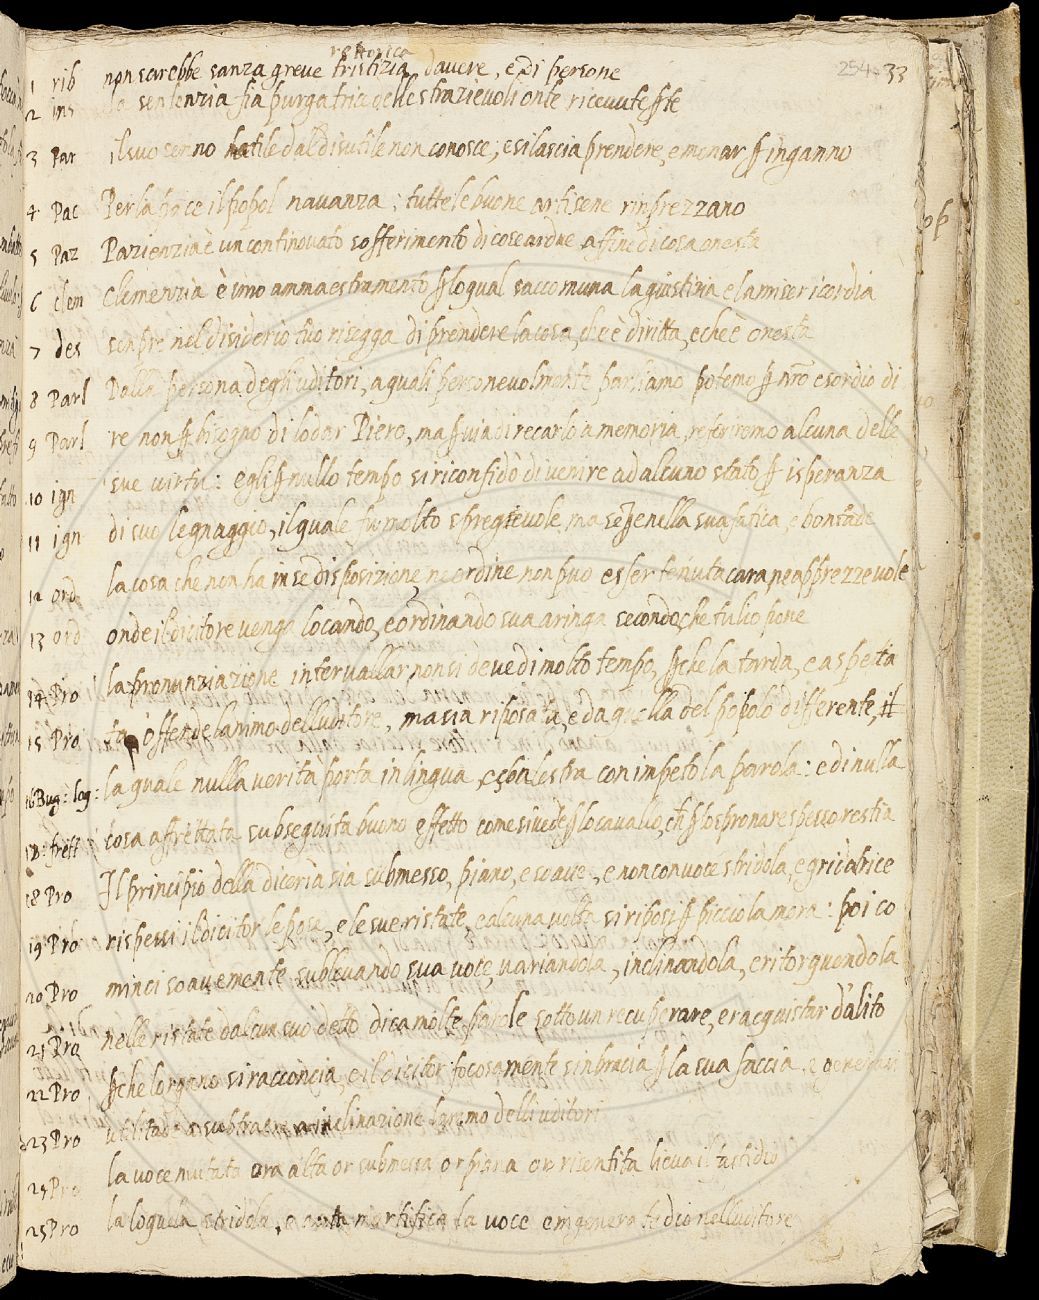 rettorica
254. 33
1 rib non sarebbe sanza greve tristizia d'avere, e di persone
2 ins la sentenzia sia purgatrice delle strazievoli onte ricevute
3 Par il suo senno l'utile dal disutile non conosce; e si lascia prendere, e menar ꝑ inganno
4 Pac Per la pace il popol n'avanza; tutte le buone arti sene rinprezzano
5 Paz Pazienzia è un continovato sofferimento di cose ardue affine di cosa onesta
6 clem Clemenzia è uno ammaestramento ꝑ lo qual s'accomuna la giustizia e la misericordia
7 des senpre nel disiderio tuo risegga di prendere la cosa, che è diritta, e che è onesta
8 Parl Dalla persona degli uditori, a quali personevolmente parliamo potemo ꝑ nr̃o esordio di
9 Parl re non ꝑ bisogno di lodar Piero, ma ꝑ via di recarlo a memoria, referiremo alcuna delle
10 ign sue virtu: egli ꝑ nullo tempo si riconfidò di venire ad alcuno stato ꝑ isperanza
11 ign di suo legnaggio, il quale fu molto spregievole, ma nella sua fatica, e bontade
12 ord la cosa che non ha in se disposizione, ne ordine non può esser tenuta cara ne apprezzevole
13 ord onde il dicitore venga locando, e ordinando sua aringa secondo che tulio pone
14 Pro la pronunziazione intervallar non si deve di molto tempo, ꝑche la tarda, e aspetta
15 Pro ta offende l'animo dell'uditore, ma sia riposata, e da quella del popolo differente, il
16 Bug: log: la quale nulla verità porta in lingua, e con impeto la parola: e di nulla
17 frett cosa affrettata subseguita buono effetto come si vede ꝑ lo cavallo, ch ꝑ lo spronare spesso restia
18 Pro Il principio della diceria sia submesso, piano, e soave, e non con voce stridola, e gridatrice
19 Pro rispessi il dicitor le pose, e le sue ristate, e alcuna volta si riposi ꝑ picciola mora: poi co
20 Pro minci soavemente sublevando sua voce, variandola, inclinandola, e ritorquendola
21 Pro nelle ristate d'alcun suo detto dica molte parole sotto un recuperare, e racquistar d'alito
22 Pro ꝑche l'organo si racconcia, e il dicitor focosamente ꝑ la sua faccia, e
23 Pro utilitade inclinazione l'animo delli uditori
25 Pro la voce mutata ora alta or submessa or piana or risentita lieva il fastidio
25 Pro la loquela stridola, e mortifica la voce e ingenera tedio nell'uditore